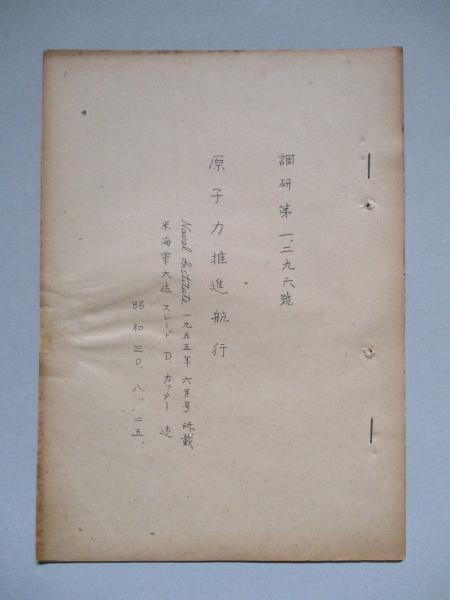 調研第一、二九六號
原子力推進航行
Naval Institute 一九五五年六月号所載
米海軍大佐 スレード.D.カッター 述
昭和三〇.八.二五.